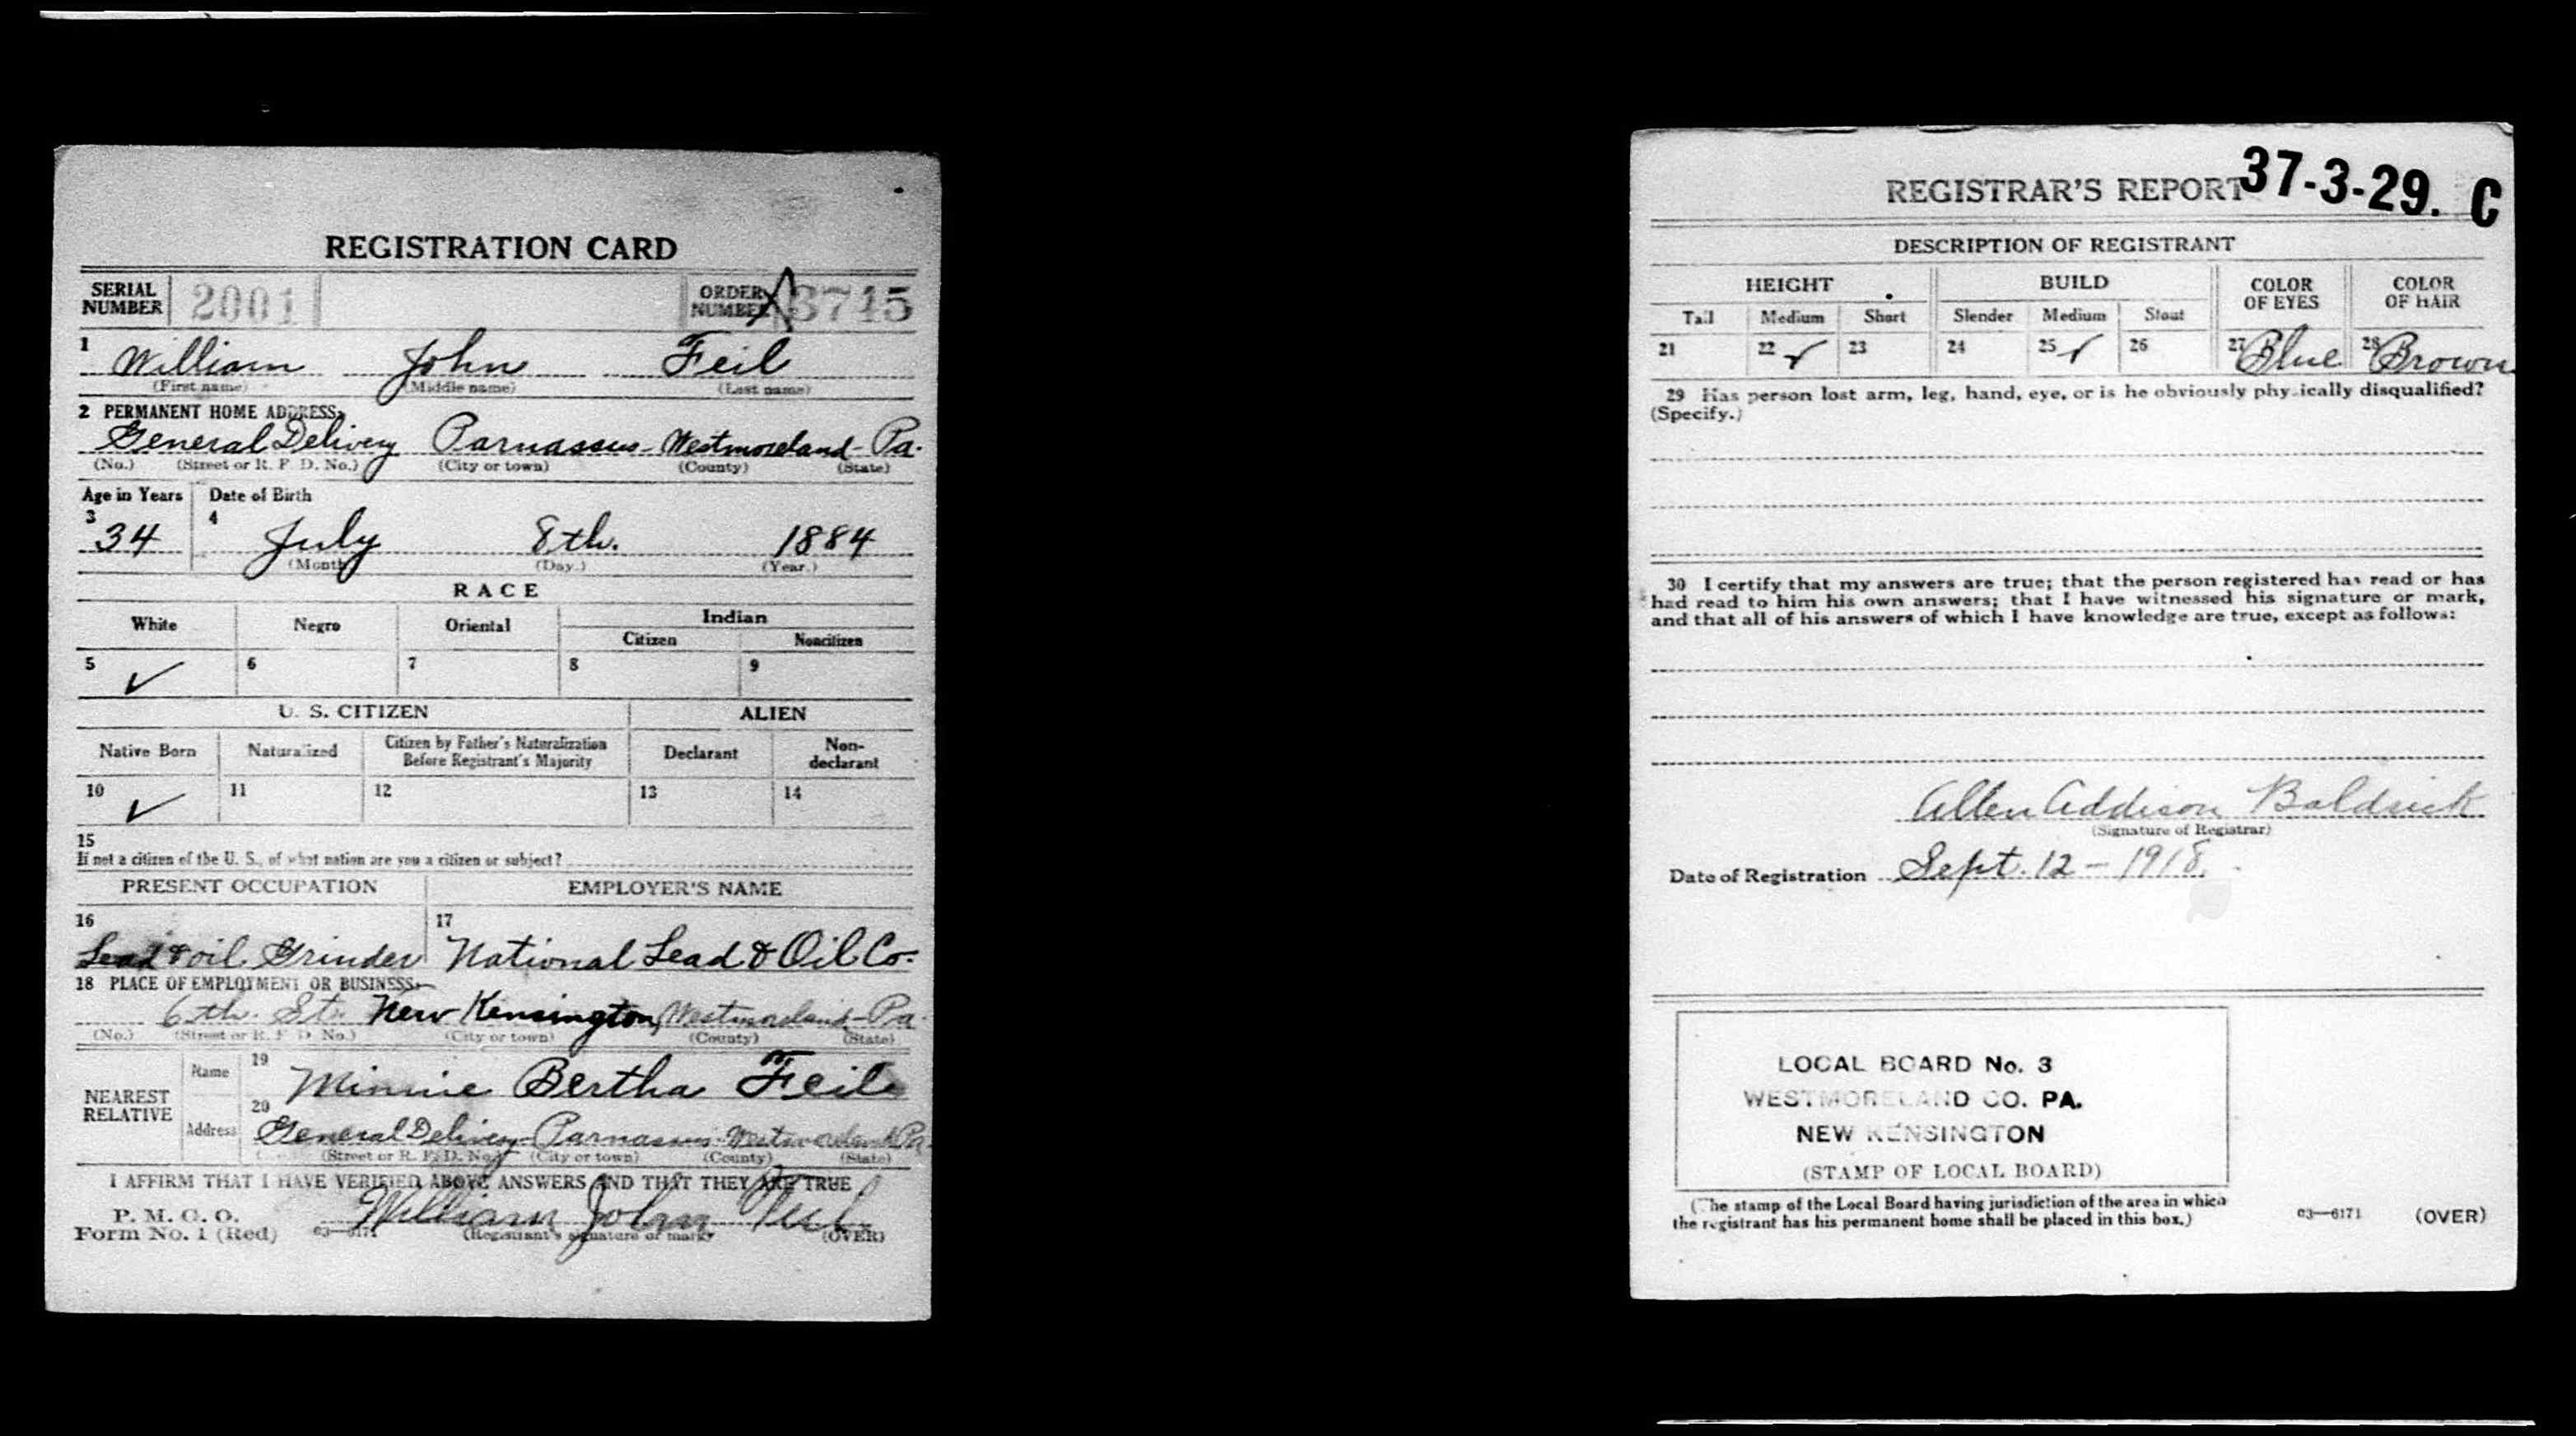 REGISTRATION CARD
SERIAL NUMBER 2001 ORDER NUMBER A3745
1 William John Feil
(First name) (Middle name) (Last name)
2 PERMANENT HOME ADDRESS:
General Delivery Parnassus - Westmoreland - Pa.
(No.) (Street or R. F. D. No.) (City or town) (County) (State)
Age in Years Date of Birth
3 34 4 July 8th. 1884
(Month) (Day.) (Year.)
RACE
White Negro Oriental Indian
Citizen Noncitizen
5 ✓ 6 7 8 9
U. S. CITIZEN ALIEN
Native Born Naturalized Citizen by Father's Naturalization Before Registrant's Majority Declarant Non-declarant
10 ✓ 11 12 13 14
15
If not a citizen of the U. S., of what nation are you a citizen or subject?
PRESENT OCCUPATION EMPLOYER'S NAME
16 17
Lead & oil Grinder National Lead & Oil Co.
18 PLACE OF EMPLOYMENT OR BUSINESS:
6th. St. New Kensington, Westmoreland - Pa.
(No.) (Street or R. F. D. No.) (City or town) (County) (State)
NEAREST RELATIVE
Name 19 Minnie Bertha Feil
Address 20 General Delivery - Parnassus - Westmoreland Pa.
(Street or R. F. D. No.) (City or town) (County) (State)
I AFFIRM THAT I HAVE VERIFIED ABOVE ANSWERS AND THAT THEY ARE TRUE
P. M. G. O.
Form No. 1 (Red) 03—6171 William John Feil
(Registrant's signature or mark) (OVER)
REGISTRAR'S REPORT 37-3-29. C
DESCRIPTION OF REGISTRANT
HEIGHT BUILD COLOR OF EYES COLOR OF HAIR
Tall Medium Short Slender Medium Stout
21 22 ✓ 23 24 25 ✓ 26 27 Blue 28 Brown
29 Has person lost arm, leg, hand, eye, or is he obviously physically disqualified?
(Specify.)
30 I certify that my answers are true; that the person registered has read or has
had read to him his own answers; that I have witnessed his signature or mark,
and that all of his answers of which I have knowledge are true, except as follows:
Allen Addison Baldrick
(Signature of Registrar)
Date of Registration Sept. 12 - 1918.
LOCAL BOARD No. 3
WESTMORELAND CO. PA.
NEW KENSINGTON
(STAMP OF LOCAL BOARD)
(The stamp of the Local Board having jurisdiction of the area in which
the registrant has his permanent home shall be placed in this box.)
03—6171 (OVER)